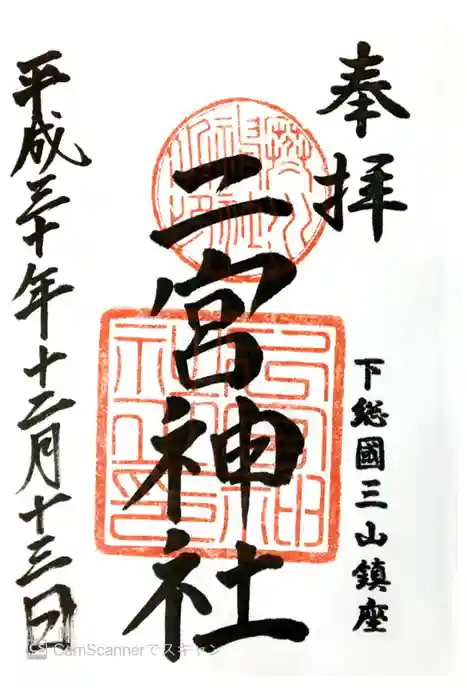 奉拝
下総國三山鎮座
二宮神社
平成三十年十二月十三日
CamScannerでスキャン